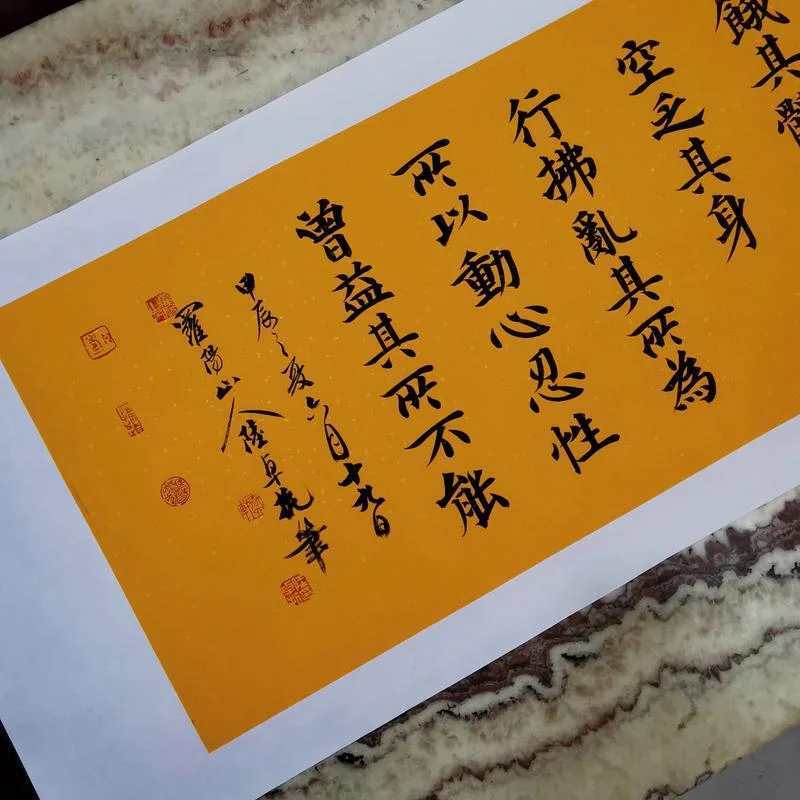 餓其體
空乏其身
行拂亂其所為
所以動心忍性
曾益其所不能
甲辰之夏六月十九日
羅陽山人陸卓執筆